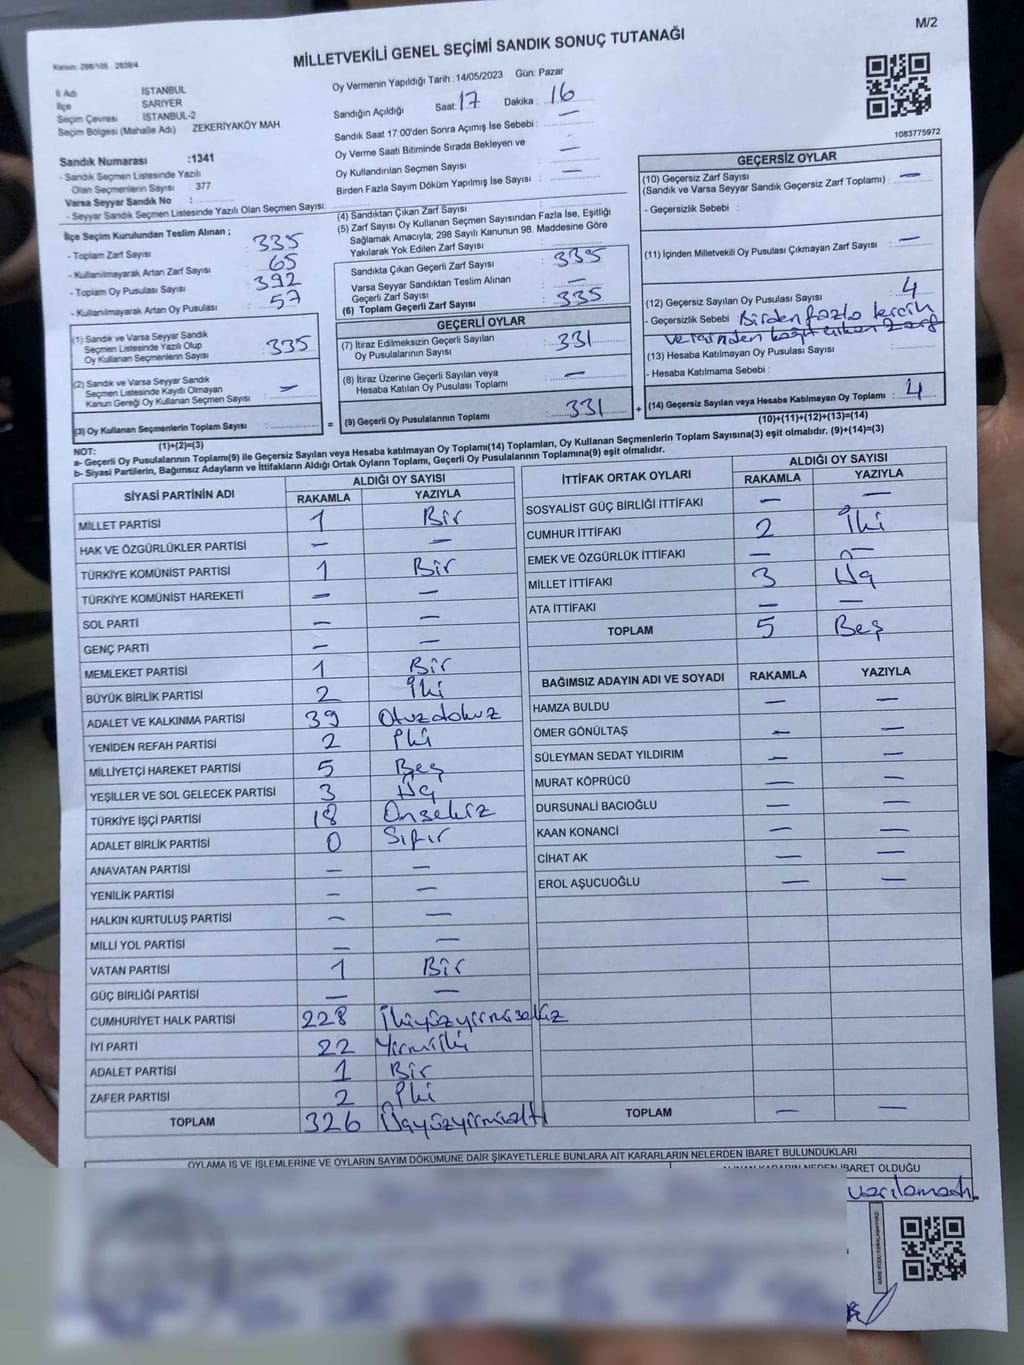 M/2
MİLLETVEKİLİ GENEL SEÇİMİ SANDIK SONUÇ TUTANAĞI
Kanun: 298/105 2839/4
İl Adı İSTANBUL
İlçe SARIYER
Seçim Çevresi : İSTANBUL-2
Seçim Bölgesi (Mahalle Adı) ZEKERİYAKÖY MAH
Sandık Numarası :1341
- Sandık Seçmen Listesinde Yazılı
Olan Seçmenlerin Sayısı : 377
Varsa Seyyar Sandık No :
- Seyyar Sandık Seçmen Listesinde Yazılı Olan Seçmen Sayısı:
Oy Vermenin Yapıldığı Tarih :14/05/2023 Gün: Pazar
Sandığın Açıldığı Saat: 17 Dakika : 16
Sandık Saat 17:00'den Sonra Açımış İse Sebebi : —
Oy Verme Saati Bitiminde Sırada Bekleyen ve
Oy Kullandırılan Seçmen Sayısı : —
Birden Fazla Sayım Döküm Yapılmış İse Sayısı : —
1083775972
İlçe Seçim Kurulundan Teslim Alınan ;
- Toplam Zarf Sayısı : 335
- Kullanılmayarak Artan Zarf Sayısı : 65
- Toplam Oy Pusulası Sayısı : 392
- Kullanılmayarak Artan Oy Pusulası : 57
(1) Sandık ve Varsa Seyyar Sandık
Seçmen Listesinde Yazılı Olup
Oy Kullanan Seçmenlerin Sayısı : 335
(2) Sandık ve Varsa Seyyar Sandık
Seçmen Listesinde Kayıtlı Olmayan
Kanun Gereği Oy Kullanan Seçmen Sayısı : —
(3) Oy Kullanan Seçmenlerin Toplam Sayısı :
(1)+(2)=(3)
(4) Sandıktan Çıkan Zarf Sayısı :
(5) Zarf Sayısı Oy Kullanan Seçmen Sayısından Fazla İse, Eşitliği
Sağlamak Amacıyla; 298 Sayılı Kanunun 98. Maddesine Göre
Yakılarak Yok Edilen Zarf Sayısı :
Sandıkta Çıkan Geçerli Zarf Sayısı : 335
Varsa Seyyar Sandıktan Teslim Alınan
Geçerli Zarf Sayısı : —
(6) Toplam Geçerli Zarf Sayısı : 335
GEÇERLİ OYLAR
(7) İtiraz Edilmeksizin Geçerli Sayılan
Oy Pusulalarının Sayısı : 331
(8) İtiraz Üzerine Geçerli Sayılan veya
Hesaba Katılan Oy Pusulası Toplamı : —
= (9) Geçerli Oy Pusulalarının Toplamı : 331 +
GEÇERSİZ OYLAR
(10) Geçersiz Zarf Sayısı
(Sandık ve Varsa Seyyar Sandık Geçersiz Zarf Toplamı) : —
- Geçersizlik Sebebi :
(11) İçinden Milletvekili Oy Pusulası Çıkmayan Zarf Sayısı : —
(12) Geçersiz Sayılan Oy Pusulası Sayısı : 4
- Geçersizlik Sebebi : Birden fazla tercih
(13) Hesaba Katılmayan Oy Pusulası Sayısı :
- Hesaba Katılmama Sebebi :
(14) Geçersiz Sayılan veya Hesaba Katılmayan Oy Toplamı : 4
(10)+(11)+(12)+(13)=(14)
NOT:
a- Geçerli Oy Pusulalarının Toplamı(9) ile Geçersiz Sayılan veya Hesaba Katılmayan Oy Toplamı(14) Toplamları, Oy Kullanan Seçmenlerin Toplam Sayısına(3) eşit olmalıdır. (9)+(14)=(3)
b- Siyasi Partilerin, Bağımsız Adayların ve İttifakların Aldığı Ortak Oyların Toplamı, Geçerli Oy Pusulalarının Toplamına(9) eşit olmalıdır.
SİYASİ PARTİNİN ADI ALDIĞI OY SAYISI
RAKAMLA YAZIYLA
MİLLET PARTİSİ 1 Bir
HAK VE ÖZGÜRLÜKLER PARTİSİ — —
TÜRKİYE KOMÜNİST PARTİSİ 1 Bir
TÜRKİYE KOMÜNİST HAREKETİ — —
SOL PARTİ — —
GENÇ PARTİ — —
MEMLEKET PARTİSİ 1 Bir
BÜYÜK BİRLİK PARTİSİ 2 İki
ADALET VE KALKINMA PARTİSİ 39 Otuzdokuz
YENİDEN REFAH PARTİSİ 2 İki
MİLLİYETÇİ HAREKET PARTİSİ 5 Beş
YEŞİLLER VE SOL GELECEK PARTİSİ 3 Üç
TÜRKİYE İŞÇİ PARTİSİ 18 Onsekiz
ADALET BİRLİK PARTİSİ 0 Sıfır
ANAVATAN PARTİSİ — —
YENİLİK PARTİSİ — —
HALKIN KURTULUŞ PARTİSİ — —
MİLLİ YOL PARTİSİ — —
VATAN PARTİSİ 1 Bir
GÜÇ BİRLİĞİ PARTİSİ — —
CUMHURİYET HALK PARTİSİ 228 İkiyüzyirmisekiz
İYİ PARTİ 22 Yirmiiki
ADALET PARTİSİ 1 Bir
ZAFER PARTİSİ 2 İki
TOPLAM 326 Üçyüzyirmialtı
İTTİFAK ORTAK OYLARI ALDIĞI OY SAYISI
RAKAMLA YAZIYLA
SOSYALİST GÜÇ BİRLİĞİ İTTİFAKI — —
CUMHUR İTTİFAKI 2 İki
EMEK VE ÖZGÜRLÜK İTTİFAKI — —
MİLLET İTTİFAKI 3 Üç
ATA İTTİFAKI — —
TOPLAM 5 Beş
BAĞIMSIZ ADAYIN ADI VE SOYADI RAKAMLA YAZIYLA
HAMZA BULDU — —
ÖMER GÖNÜLTAŞ — —
SÜLEYMAN SEDAT YILDIRIM — —
MURAT KÖPRÜCÜ — —
DURSUNALİ BACIOĞLU — —
KAAN KONANCİ — —
CİHAT AK — —
EROL AŞUCUOĞLU — —
TOPLAM — —
OYLAMA İŞ VE İŞLEMLERİNE VE OYLARIN SAYIM DÖKÜMÜNE DAİR ŞİKAYETLERLE BUNLARA AİT KARARLARIN NELERDEN İBARET BULUNDUKLARI
İBARET OLDUĞU